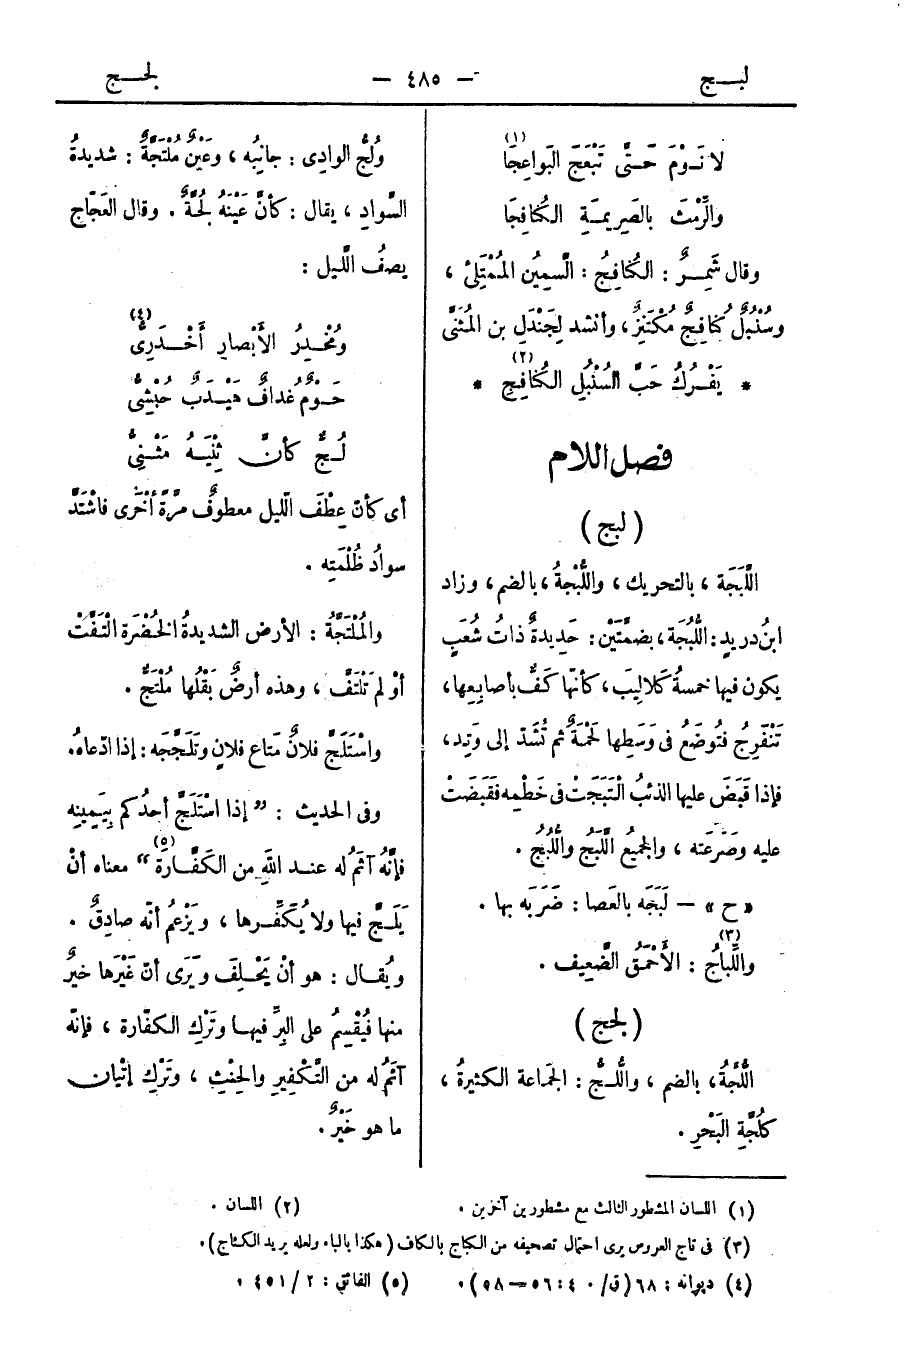 لبج
— ٤٨٥ —
لجج
لا نَوْمَ حَتَّى تَبْعَجَ البَواعِجَا (١)
والرِّمْثَ بالصَرِيمَةِ الكُنافِجَا
وقال شَمِرٌ : الكُنافِجُ : السَّمِينُ المُمْتَلِئُ ،
وسُنْبُلٌ كُنافِجٌ مُكْتَنِزٌ ، وأنشد لِجَنْدَلِ بن المُثَنَّى
* يَفْرُكُ حَبَّ السُنْبُلِ الكُنافِجِ (٢) *
فصل اللام
( لبج )
اللَّبَجَة ، بالتحريك ، واللُّبْجَةُ ، بالضم ، وزاد
ابنُ دريدٍ : اللُّبُجَة ، بضمَّتَيْن : حَدِيدةٌ ذاتُ شُعَبٍ
يكون فيها خمسةُ كَلالِيبَ ، كأنّها كَفٌّ بأصابِعِها ،
تَنْفَرِجُ فتُوضَعُ فى وَسَطِها لَحْمَةٌ ثم تُشَدّ إلى وَتِدٍ ،
فإذا قَبَضَ عليها الذئبُ الْتَبَجَتْ فى خَطْمِه فقَبَضَتْ
عليه وصَرَعَته ، والجميعُ اللَّبَجُ واللُّبُجُ .
« ح » — لَبَجَه بالعَصا : ضَرَبَه بها .
واللَّباجُ (٣) : الأَحْمَقُ الضَّعِيف .
( لجج )
اللُّجَّةُ ، بالضم ، واللُّجُّ : الجَماعة الكثيرةُ ،
كلُجَّةِ البَحْرِ .
ولُجُّ الوادِى : جانِبُه ، وعَيْنٌ مُلْتَجَّةٌ : شديدةُ
السَّوادِ ، يقال : كأنَّ عَيْنَهُ لُجَّةٌ . وقال العَجّاج
يصفُ اللَّيل :
ومُخْدِرُ الأَبْصارِ أَخْدَرِىُّ (٤)
حَوْمٌ غُدافٌ هَيْدَبٌ حُبْشِىُّ
لُجٌّ كأنَّ ثِنْيَهُ مَثْنِىُّ
أى كأنّ عِطْفَ اللّيل معطوفٌ مرَّةً أُخْرَى فاشْتَدَّ
سوادُ ظُلْمَتِه .
والمُلْتَجَّةُ : الأرض الشديدةُ الخُضْرَة الْتَفَّتْ
أوْ لم تَلْتَفَّ ، وهذه أرضٌ بَقْلُها مُلْتَجٌّ .
واسْتَلَجَّ فلانٌ مَتاع فلانٍ وتَلَجَّجَه : إذا ادّعاهُ .
وفى الحديث : " إذا اسْتَلَجَّ أحدُكم بِيَمِينِه
فإنَّهُ آثَمُ له عند اللهِ من الكَفَّارَة (٥) " معناه أنْ
يَلَجَّ فيها ولا يُكَفِّرها ، ويَزْعُمُ أنّه صادِقٌ .
ويُقال : هو أنْ يَحْلِفَ ويَرَى أنّ غَيْرَها خيرٌ
منها فيُقْسِمُ على البِرِّ فيها وتَرْكِ الكفّارة ، فإنّه
آثَمُ له من التَّكْفِيرِ والحِنْثِ ، وتَرْكِ إتْيان
ما هو خَيْرٌ .
(١) اللسان المشطور الثالث مع مشطورين آخرين .
(٢) اللسان .
(٣) فى تاج العروس يرى احتمال تصحيفه من الكباج بالكاف ( هكذا بالباء ولعله يريد الكثاج ) .
(٤) ديوانه : ٦٨ (ق/ ٤٠ : ٥٦ — ٥٨) .
(٥) الفائق : ٢ / ٤٥١ .